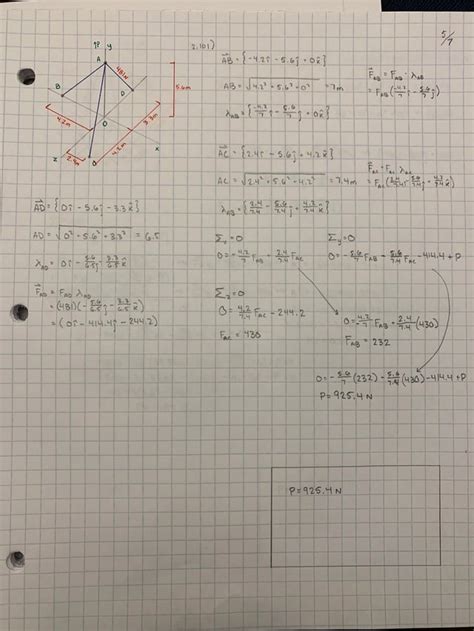 5/7
2.101)
P y
A
481N
B
D
O
C
x
z
5.6m
4.2m
3.3m
2.4m
4.2m
AB = {-4.2î - 5.6ĵ + 0k̂}
AB = √4.2² + 5.6² + 0² = 7m
λAB = {-4.2/7 î - 5.6/7 ĵ + 0k̂}
FAB = FAB · λAB
= FAB(-4.2/7 î - 5.6/7 ĵ)
AC = {2.4î - 5.6ĵ + 4.2k̂}
AC = √2.4² + 5.6² + 4.2² = 7.4m
FAC = FAC · λAC
AD = {0î - 5.6ĵ - 3.3k̂}
AD = √0² - 5.6² + 3.3² = 6.5
λAD = 0î - 5.6/6.5 ĵ - 3.3/6.5 k̂
FAD = FAD λAD
= (481)(-5.6/6.5 ĵ - 3.3/6.5 k̂)
= (0î - 414.4ĵ - 244.2)
Σx = 0
0 = -4.2/7 FAB - 2.4/7.4 FAC
Σy = 0
0 = -5.6/7 FAB - 5.6/7.4 FAC - 414.4 + P
Σz = 0
0 = 4.2/7.4 FAC - 244.2
FAC = 430
0 = 4.2/7 FAB - 2.4/7.4 (430)
FAB = 232
0 = -5.6/7 (232) - 5.6/7.4 (430) - 414.4 + P
P = 925.4 N
P = 925.4 N